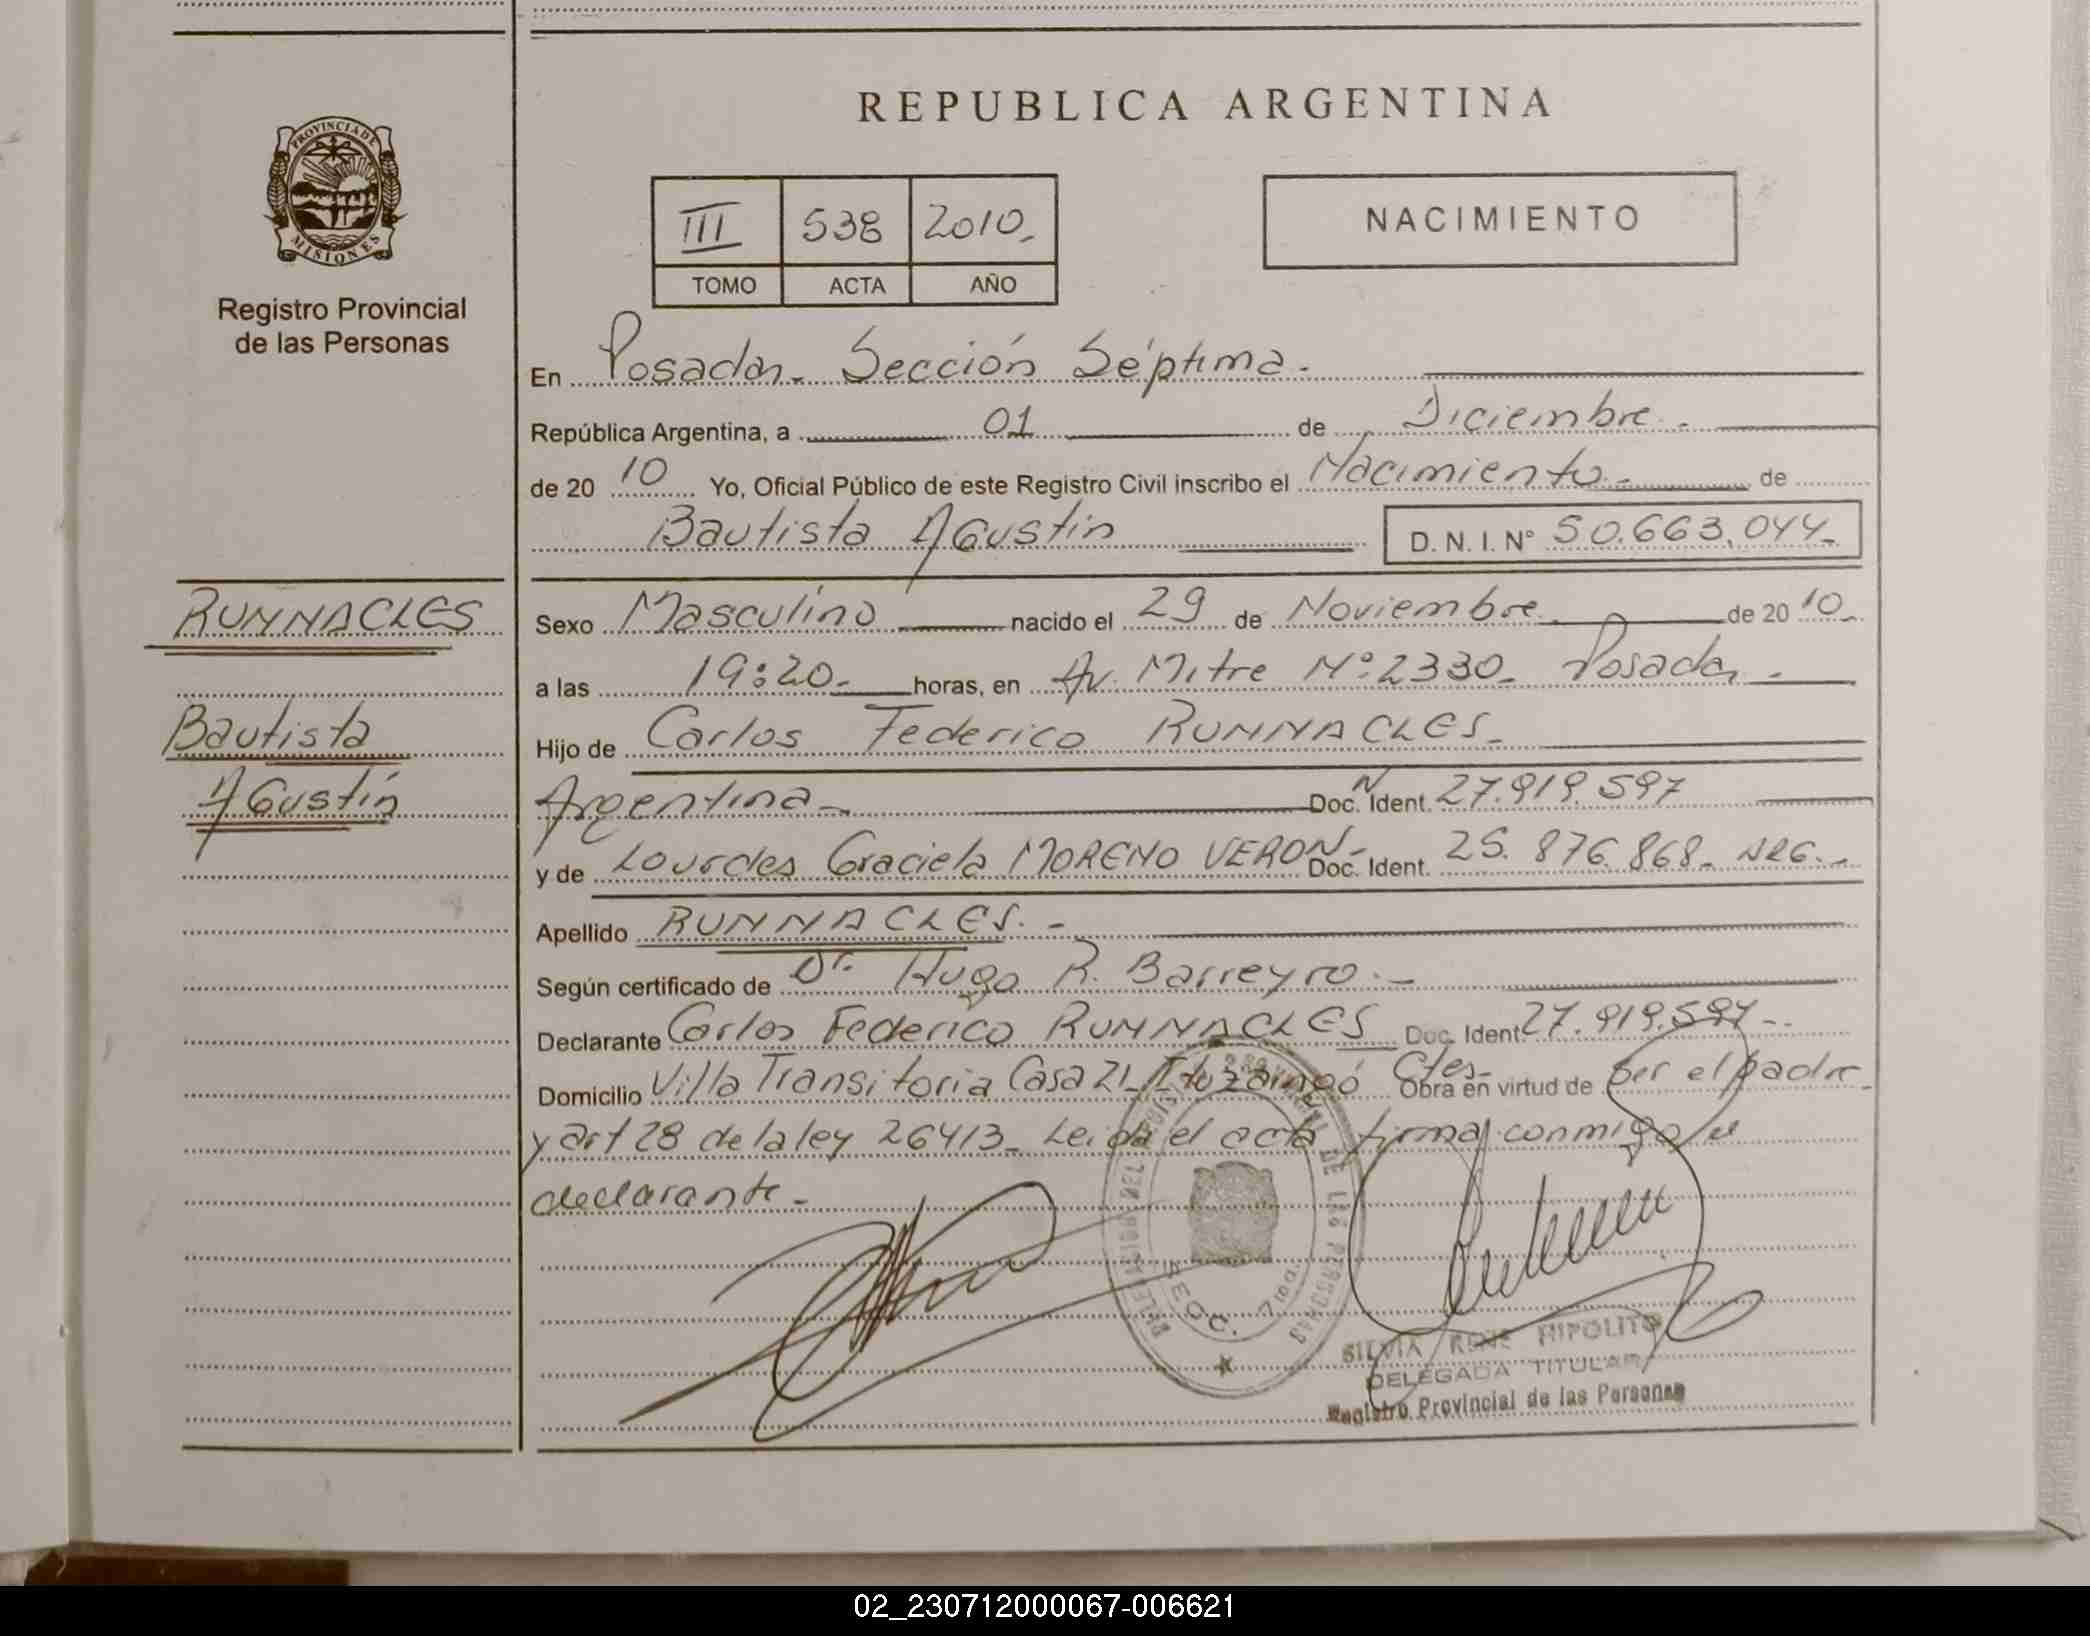 REPUBLICA ARGENTINA
PROVINCIA DE
MISIONES
Registro Provincial
de las Personas
III 538 2010.
TOMO ACTA AÑO
NACIMIENTO
En Posadas. Sección Séptima.
República Argentina, a 01 de Diciembre.
de 20 10 Yo, Oficial Público de este Registro Civil inscribo el Nacimiento. de
Bautista Agustín D. N. I. N° 50.663.044.
RUNNACLES
Bautista
Agustín
Sexo Masculino nacido el 29 de Noviembre de 20 10.
a las 19:20. horas, en Av. Mitre N°:2330. Posadas.
Hijo de Carlos Federico RUNNACLES.
Argentina. Doc. Ident. 27.919.597
y de Lourdes Graciela MORENO VERON. Doc. Ident. 25.876.868.
Apellido RUNNACLES.-
Según certificado de Dr. Hugo R. Barreyro.-
Declarante Carlos Federico RUNNACLES Doc. Ident. 27.919.597-
Domicilio Villa Transitoria Casa 21 Ituzaingó Ctes- Obra en virtud de ser el padre
y art 28 de la ley 26413. Leída el acta firma conmigo el
declarante.-
DELEGACION DEL REGISTRO PROVINCIAL DE LAS PERSONAS
SECC. 7ma.
SILVIA RENE HIPOLITO
DELEGADA TITULAR
Registro Provincial de las Personas
02_230712000067-006621